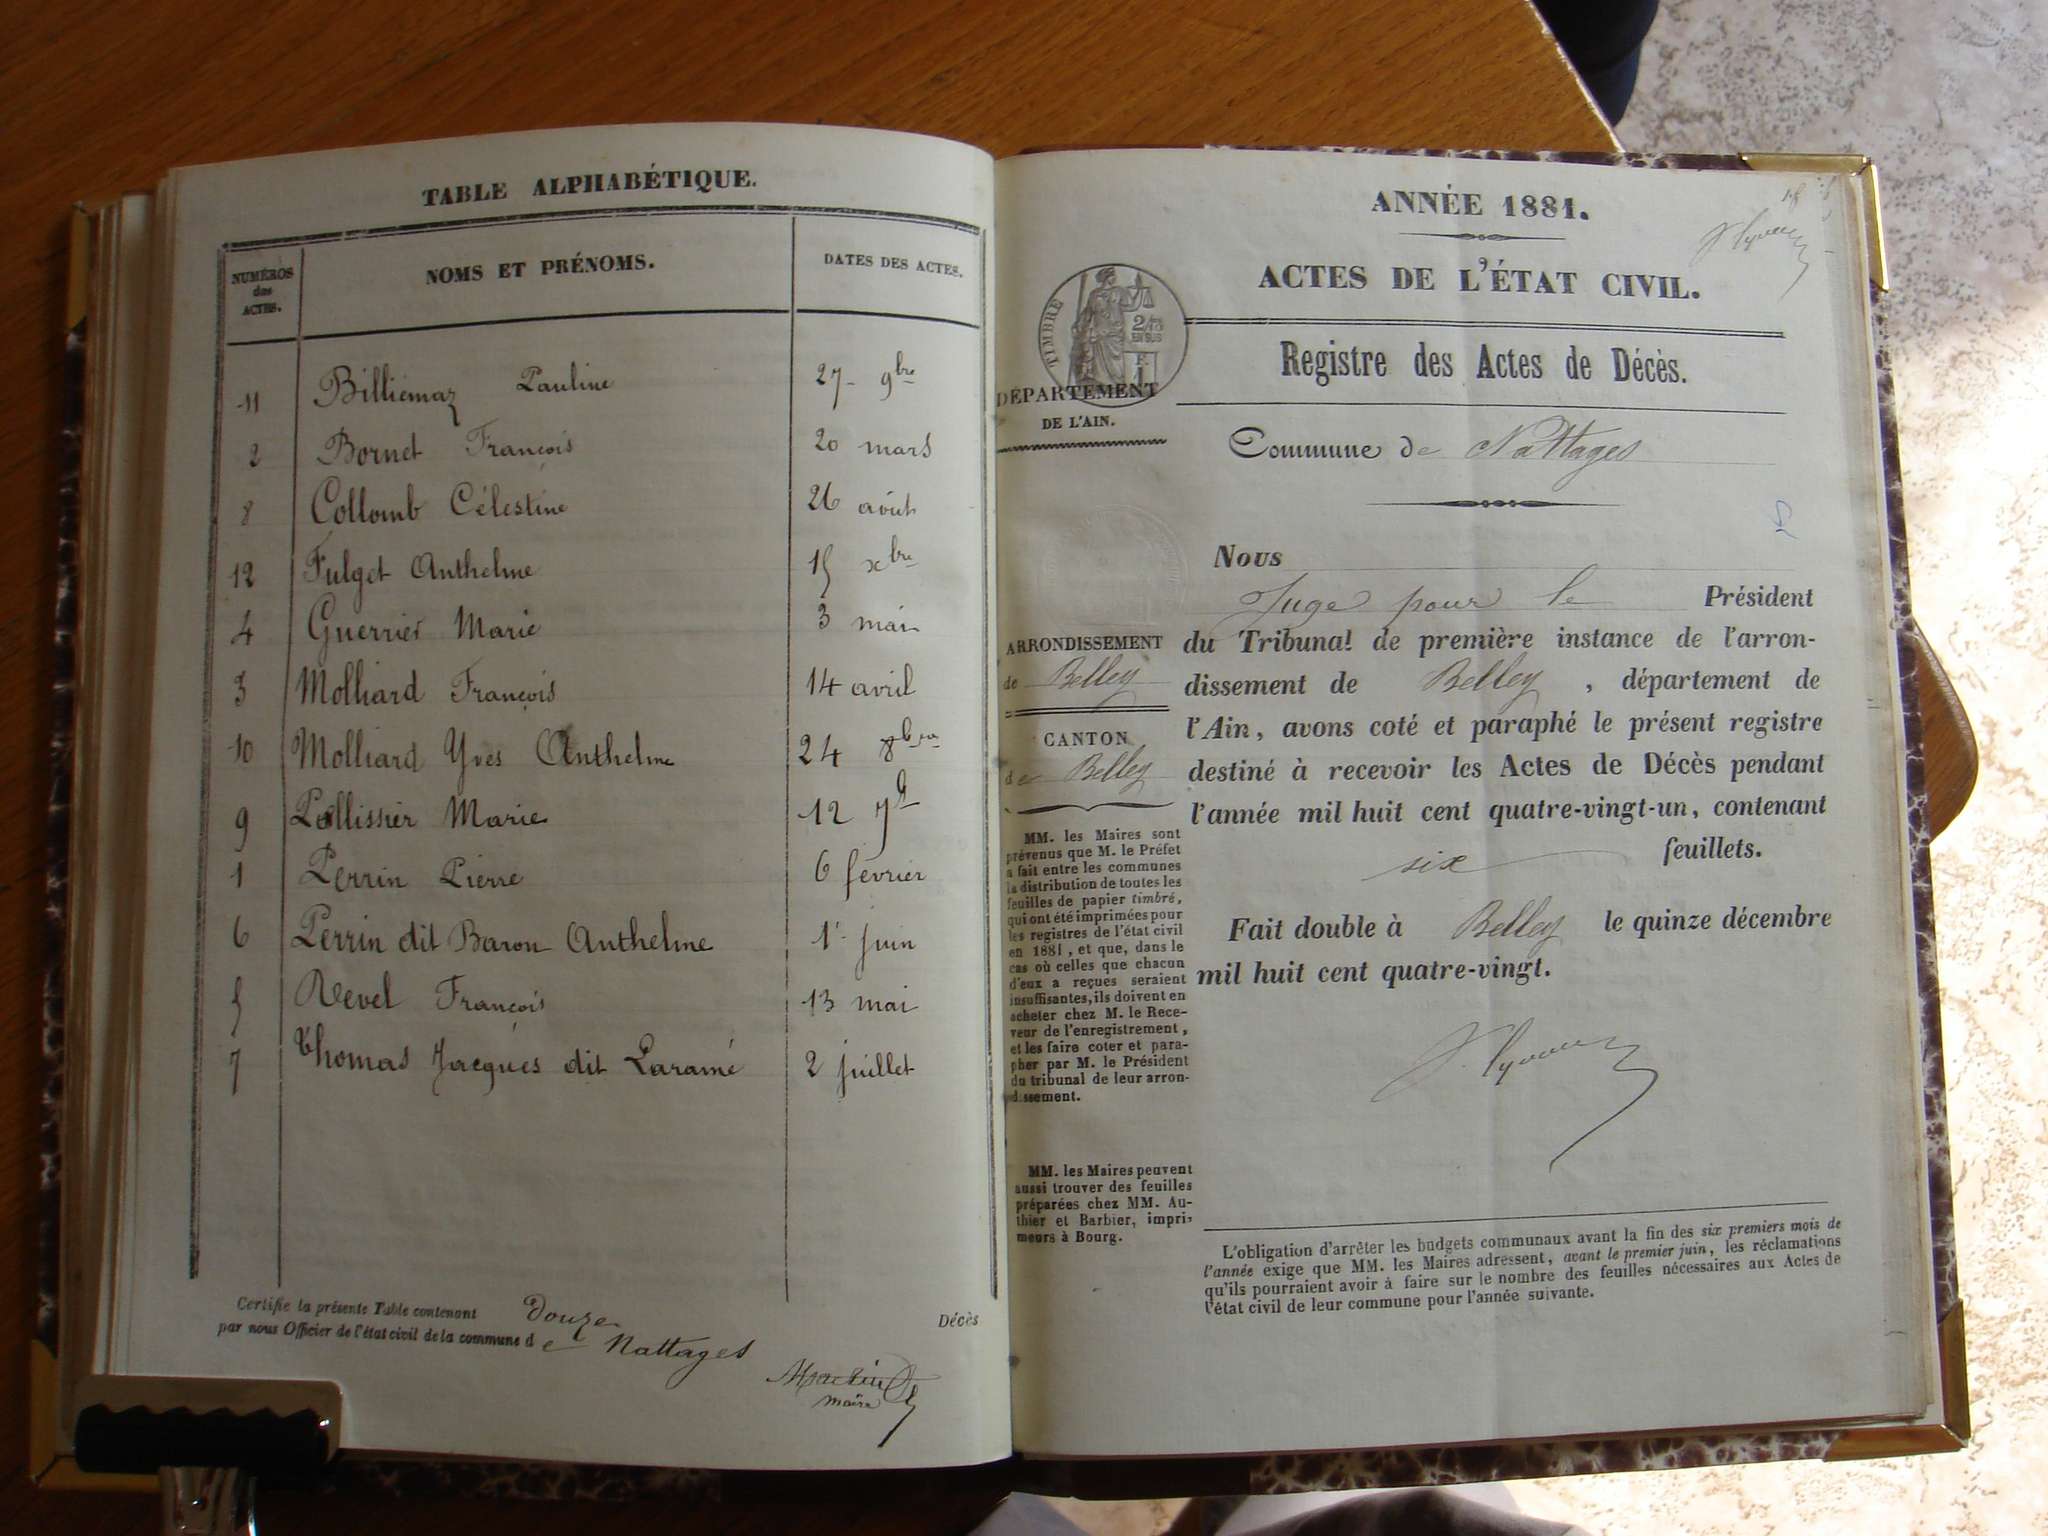 TABLE ALPHABÉTIQUE.
NUMÉROS des ACTES. NOMS ET PRÉNOMS. DATES DES ACTES.
11 Billiémaz Pauline 27 9bre
2 Bornet François 20 mars
8 Collomb Célestine 26 août
12 Fulget Anthelme 15 xbre
4 Guerrier Marie 3 mai
3 Molliard François 14 avril
10 Molliard Yves Anthelme 24 8bre
9 Pellissier Marie 12 7b
1 Perrin Pierre 6 février
6 Perrin dit Baron Anthelme 1r juin
5 Revel François 13 mai
7 Thomas Jacques dit Laramé 2 juillet
Certifie la présente Table contenant Douze Décès
par nous Officier de l'état civil de la commune de Nattages
maire
ANNÉE 1881.
ACTES DE L'ÉTAT CIVIL.
TIMBRE
Registre des Actes de Décès.
DÉPARTEMENT
DE L'AIN.
Commune de Nattages
Nous
Juge pour le Président
du Tribunal de première instance de l'arron-
dissement de Belley, département de
l'Ain, avons coté et paraphé le présent registre
destiné à recevoir les Actes de Décès pendant
l'année mil huit cent quatre-vingt-un, contenant
six feuillets.
Fait double à Belley le quinze décembre
mil huit cent quatre-vingt.
ARRONDISSEMENT
de Belley
CANTON
de Belley
MM. les Maires sont
prévenus que M. le Préfet
a fait entre les communes
la distribution de toutes les
feuilles de papier timbré,
qui ont été imprimées pour
les registres de l'état civil
en 1881, et que, dans le
cas où celles que chacun
d'eux a reçues seraient
insuffisantes, ils doivent en
acheter chez M. le Rece-
veur de l'enregistrement,
et les faire coter et para-
pher par M. le Président
du tribunal de leur arron-
dissement.
MM. les Maires peuvent
aussi trouver des feuilles
préparées chez MM. Au-
thier et Barbier, impri-
meurs à Bourg.
L'obligation d'arrêter les budgets communaux avant la fin des six premiers mois de
l'année exige que MM. les Maires adressent, avant le premier juin, les réclamations
qu'ils pourraient avoir à faire sur le nombre des feuilles nécessaires aux Actes de
l'état civil de leur commune pour l'année suivante.